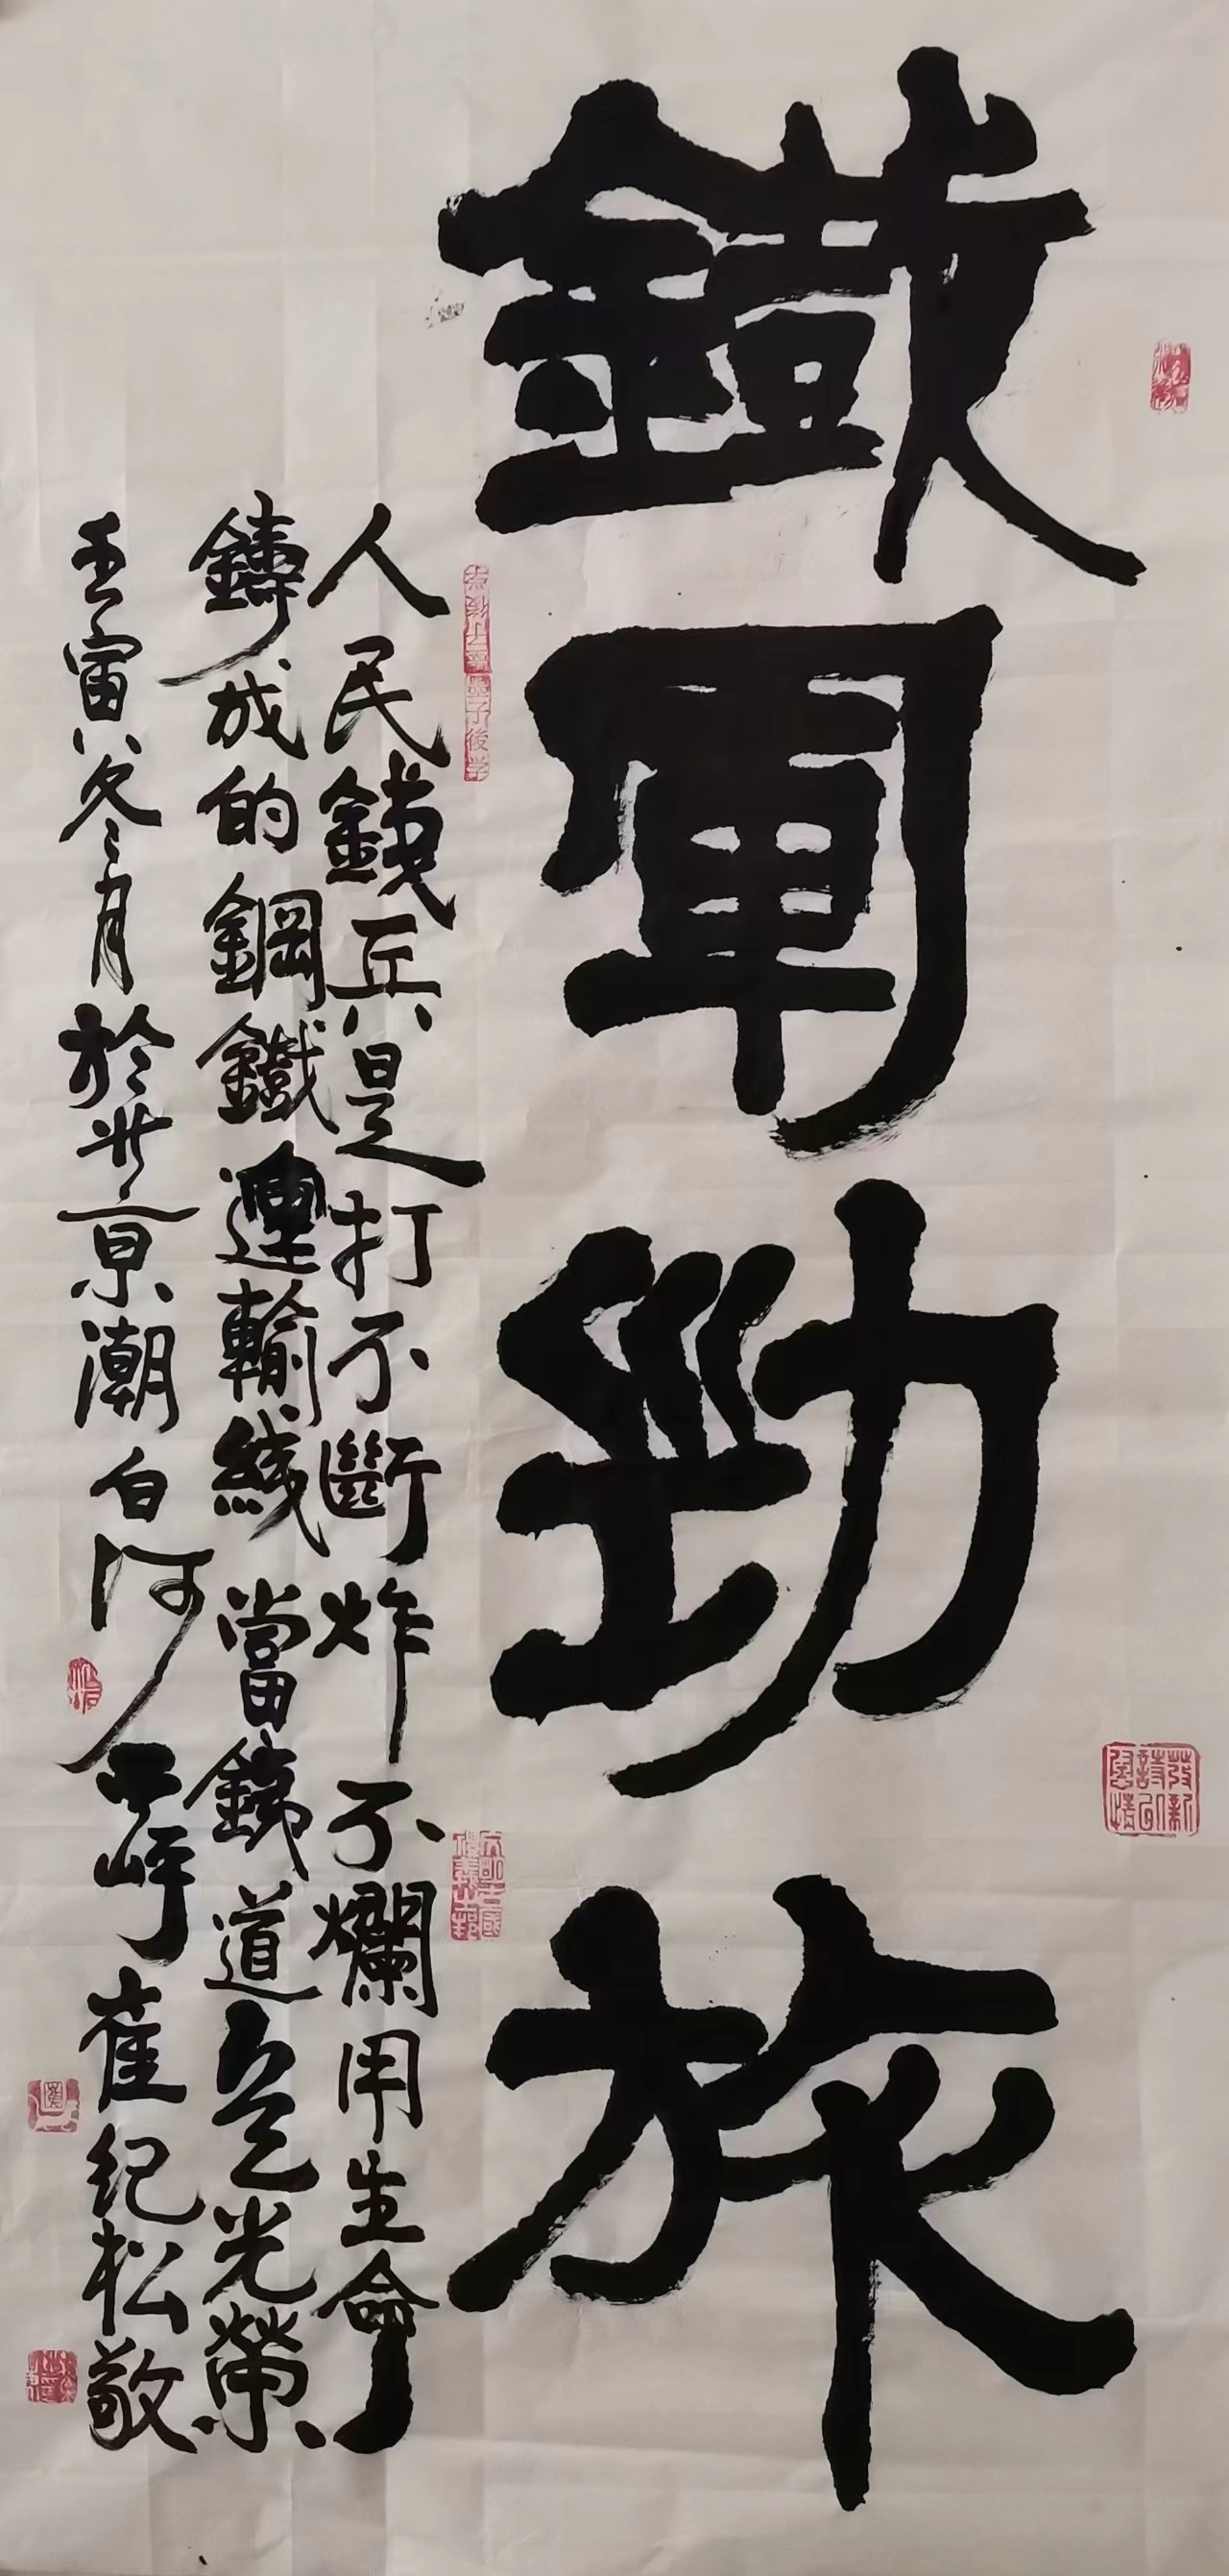 鐵軍勁旅
人民鐵兵是打不斷炸不爛用生命
鑄成的鋼鐵運輸线當鐵道兵光榮
壬寅冬月於北京潮白河崔纪松敬